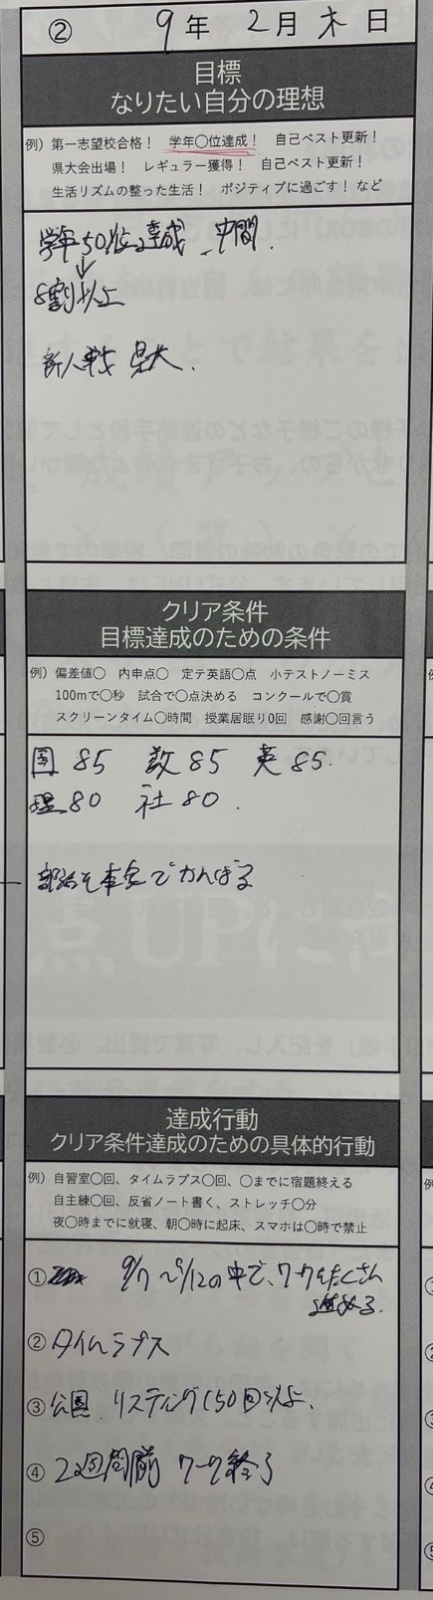 ② 9年 2月 木日
目標
なりたい自分の理想
例）第一志望校合格！ 学年〇位達成！ 自己ベスト更新！
県大会出場！ レギュラー獲得！ 自己ベスト更新！
生活リズムの整った生活！ ポジティブに過ごす！ など
学年50位達成 中間.
↓
8割以上
新人戦 県大.
クリア条件
目標達成のための条件
例）偏差値〇 内申点〇 定テ英語〇点 小テストノーミス
100mで〇秒 試合で〇点決める コンクールで〇賞
スクリーンタイム〇時間 授業居眠り0回 感謝〇回言う
国 85 数 85 英 85.
理 80 社 80.
部活を本気でがんばる
達成行動
クリア条件達成のための具体的行動
例）自習室〇回、タイムラプス〇回、〇までに宿題終える
自主練〇回、反省ノート書く、ストレッチ〇分
夜〇時までに就寝、朝〇時に起床、スマホは〇時で禁止
① 9/7~9/12の中で、ワークをたくさん
進める.
② タイムラプス
③ 公園. リスティング(50回)以上.
④ 2週間前 ワーク終了
⑤